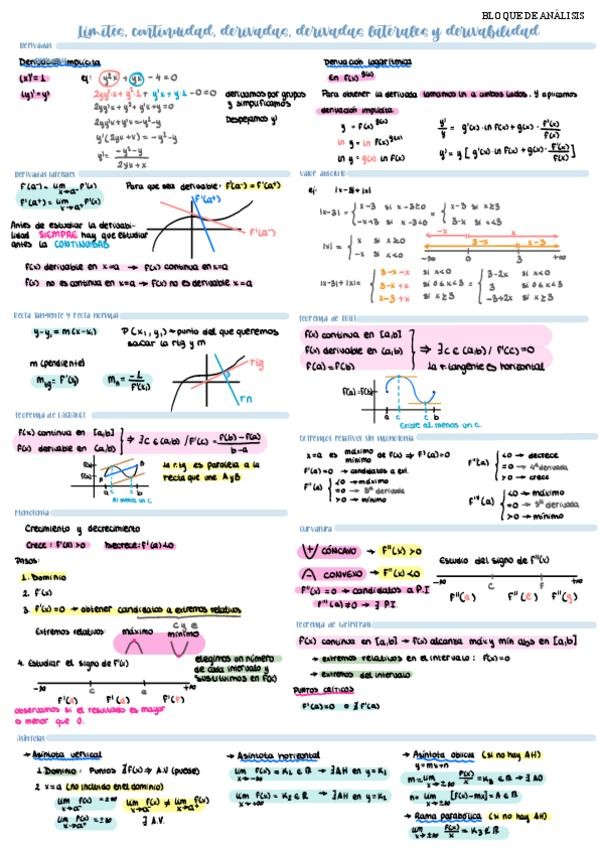 BLOQUE DE ANÁLISIS
Límites, continuidad, derivadas, derivadas laterales y derivabilidad
Derivadas
Derivación implícita
(x)'=1
(y)'=y'
ej: y²x + yx - 4 = 0
2yy'x + y²·1 + y'x + y·1 - 0 = 0
2yy'x + y² + y'x + y = 0
2yy'x + y'x = -y² - y
y'(2yx + x) = -y² - y
y' = (-y² - y)/(2yx + x)
derivamos por grupos
y simplificamos
Despejamos y'
Derivación logarítmica
en f(x)^g(x)
Para obtener la derivada tomamos ln a ambos lados, y aplicamos
derivación implícita
y = f(x)^g(x)
ln y = ln f(x)^g(x)
ln y = g(x) ln f(x)
y'/y = g'(x)·ln f(x) + g(x)· f'(x)/f(x)
y' = y [g'(x)·ln f(x) + g(x)· f'(x)/f(x)]
Derivadas laterales
f'(a⁻) = lím x→a⁻ f'(x)
f'(a⁺) = lím x→a⁺ f'(x)
Para que sea derivable: f'(a⁻) = f'(a⁺)
Antes de estudiar la derivabi-
lidad SIEMPRE hay que estudiar
antes la CONTINUIDAD
f'(a⁺)
f'(a⁻)
f(x) derivable en x=a → f(x) continua en x=a
f(x) no es continua en x=a → f(x) no es derivable x=a
Valor absoluto
ej: |x-3| + |x|
|x-3| = { x-3 si x-3≥0 = { x-3 si x≥3
-x+3 si x-3<0 3-x si x<3
|x| = { x si x≥0
-x si x<0
-x x
3-x x-3
-∞ 0 3 +∞
|x-3|+|x| = { 3-x-x si x<0 = { 3-2x si x<0
3-x+x si 0≤x<3 3 si 0≤x<3
x-3+x si x≥3 -3+2x si x≥3
Recta tangente y recta normal
y-y₁ = m(x-x₁)
P(x₁,y₁) → punto del que queremos
sacar la rtg y rn
m (pendiente)
rtg
rn
Teorema de Rolle
f(x) continua en [a,b]
f(x) derivable en (a,b) ⇒ ∃c∈(a,b) / f'(c)=0
f(a)=f(b) la r.tangente es horizontal
f(a)=f(b)
a c c b
Existe al menos un c
Teorema de Lagrange
f(x) continua en [a,b]
f(x) derivable en (a,b) ⇒ ∃c∈(a,b) / f'(c) = (f(b)-f(a))/(b-a)
f(b)
f(a)
a c c b
Al menos un c
la r.tg es paralela a la
recta que une A y B
Extremos relativos sin monotonía
x=a es máximo mínimo de f(x) ⇒ f'(a)=0
f'(a)=0 → candidatos a ext.
f''(a) { <0 → máximo
=0 → 3ª derivada
>0 → mínimo
f'''(a) { <0 → decrece
=0 → 4ª derivada
>0 → crece
<0 → máximo
=0 → 5ª derivada
>0 → mínimo
Monotonía
Crecimiento y decrecimiento
Crece: f'(x)>0 Decrece: f'(x)<0
Pasos:
1. Dominio
2. f'(x)
3. f'(x)=0 → obtener candidatos a extremos relativos
c y e
Extremos relativos: máximo mínimo
4. Estudiar el signo de f'(x)
elegimos un número
de cada intervalo y
sustituimos en f'(x)
-∞ c a +∞
observamos si el resultado es mayor
o menor que 0.
Curvatura
CÓNCAVO → f''(x)>0
CONVEXO → f''(x)<0
f''(x)=0 → candidatos a P.I
f'''(a)≠0 → ∃ P.I.
Estudio del signo de f''(x)
-∞ c f +∞
f''(a) f''(e) f''(g)
Teorema de Weierstrass
f(x) continua en [a,b] → f(x) alcanza máx y mín abs en [a,b]
→ extremos relativos en el intervalo: f'(x)=0
→ extremos del intervalo
Puntos críticos
f'(a)=0 o ∄f'(a)
Asíntotas
→ Asíntota vertical
1. Dominio: Puntos ∄f(x) ⇒ A.V (puede)
2. x=a (no incluido en el dominio)
lím x→a⁻ f(x) = ±∞
lím x→a⁺ f(x) = ±∞
lím x→a⁻ f(x) ≠ lím x→a⁺ f(x)
∃ A.V.
→ Asíntota horizontal
lím x→+∞ f(x) = K₁ ∈ ℝ → ∃AH en y=K₁
lím x→-∞ f(x) = K₂ ∈ ℝ → ∃AH en y=K₂
→ Asíntota oblicua (si no hay AH)
y=mx+n
m = lím x→±∞ f(x)/x = K₃ ∈ ℝ → ∃ AO
n = lím x→±∞ [f(x)-mx] = A ∈ ℝ
→ Rama parabólica (si no hay AH)
lím x→±∞ f(x)/x = K₃ ∉ ℝ